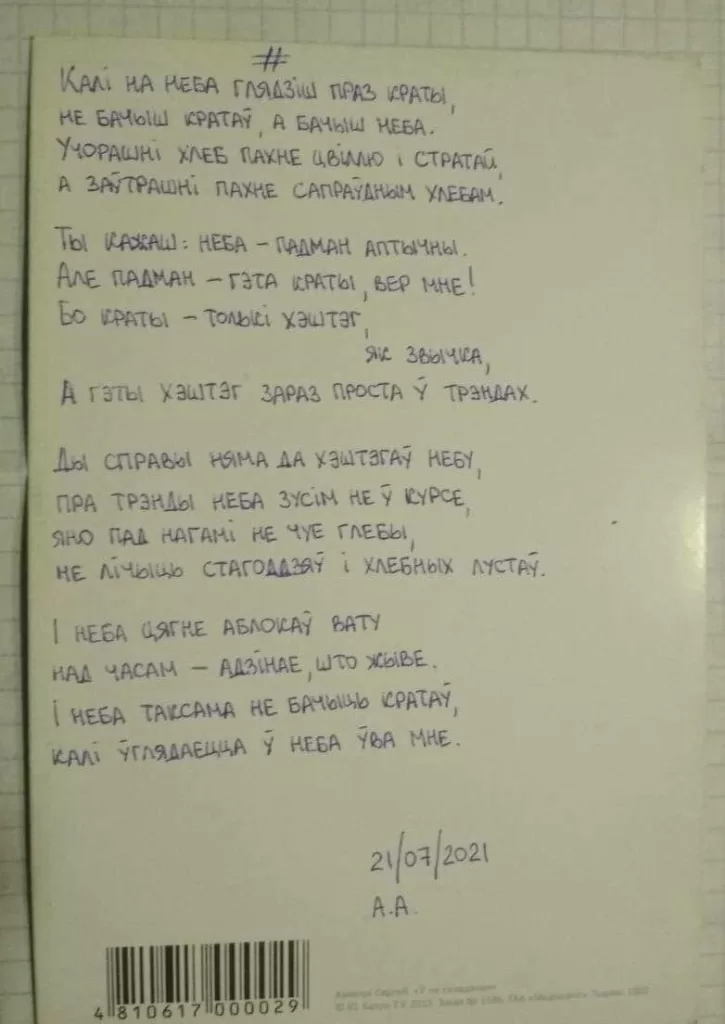 #
Калі на неба глядзіш праз краты,
не бачыш кратаў, а бачыш неба.
Учорашні хлеб пахне цвіллю і стратай,
а заўтрашні пахне сапраўдным хлебам.
Ты кажаш: неба – падман аптычны.
Але падман – гэта краты, вер мне!
Бо краты – толькі хэштэг,
як звычка,
А гэты хэштэг зараз проста ў трэндах.
Ды справы няма да хэштэгаў небу,
пра трэнды неба зусім не ў курсе,
яно пад нагамі не чуе глебы,
не лічыць стагоддзяў і хлебных лустаў.
І неба цягне аблокаў вату
над часам – адзінае, што жыве.
І неба таксама не бачыць кратаў,
калі ўглядаецца ў неба ўва мне.
21/07/2021
А.А.
4 810617 000029